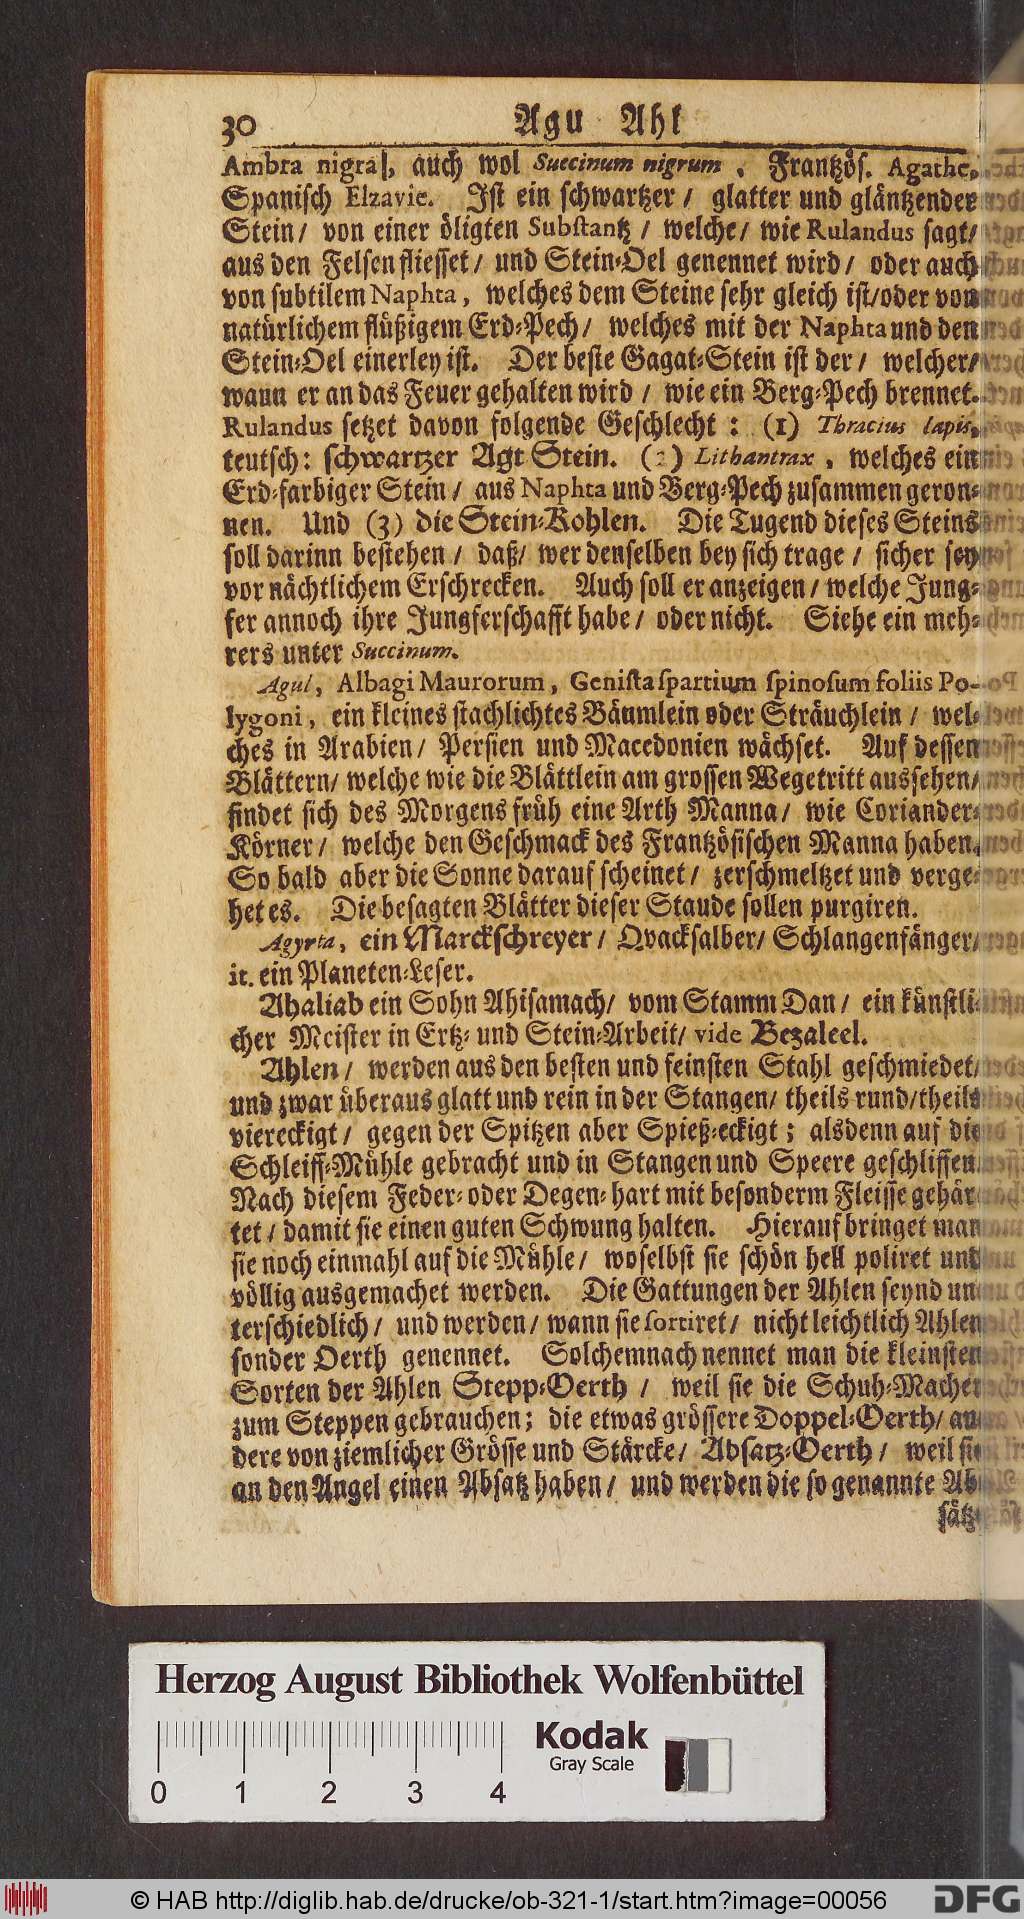 30 Agu Ahl
Ambra nigra, auch wol Succinum nigrum, Frantzös. Agathe,
Spanisch Elzavie. Ist ein schwartzer / glatter und gläntzender
Stein / von einer öligten Substantz / welche / wie Rulandus sagt /
aus den Felsen fliesset / und Stein-Oel genennet wird / oder auch
von subtilem Naphta, welches dem Steine sehr gleich ist / oder von
natürlichem flüßigem Erd-Pech / welches mit der Naphta und den
Stein-Oel einerley ist. Der beste Gagat-Stein ist der / welcher /
wann er an das Feuer gehalten wird / wie ein Berg-Pech brennet.
Rulandus setzet davon folgende Geschlecht : (1) Thracius lapis,
teutsch: schwartzer Agt Stein. (2) Lithantrax, welches ein
Erd-farbiger Stein / aus Naphta und Berg-Pech zusammen geron-
nen. Und (3) die Stein-Kohlen. Die Tugend dieses Steins
soll darinn bestehen / daß / wer denselben bey sich trage / sicher sey
vor nächtlichem Erschrecken. Auch soll er anzeigen / welche Jung-
fer annoch ihre Jungferschafft habe / oder nicht. Siehe ein meh-
rers unter Succinum.
Agul, Albagi Maurorum, Genista spartium spinosum foliis Po-
lygoni, ein kleines stachlichtes Bäumlein oder Sträuchlein / wel-
ches in Arabien / Persien und Macedonien wächset. Auf dessen
Blättern / welche wie die Blättlein am grossen Wegetritt aussehen /
findet sich des Morgens früh eine Arth Manna / wie Coriander-
Körner / welche den Geschmack des Frantzösischen Manna haben.
So bald aber die Sonne darauf scheinet / zerschmeltzet und verge-
het es. Die besagten Blätter dieser Staude sollen purgiren.
Agyrta, ein Marckschreyer / Qvacksalber / Schlangenfänger /
it. ein Planeten-Leser.
Ahaliab ein Sohn Ahisamach / vom Stamm Dan / ein künstli-
cher Meister in Ertz- und Stein-Arbeit / vide Bezaleel.
Ahlen / werden aus den besten und feinsten Stahl geschmiedet /
und zwar überaus glatt und rein in der Stangen / theils rund / theils
viereckigt / gegen der Spitzen aber Spieß-eckigt ; alsdenn auf die
Schleiff-Mühle gebracht und in Stangen und Speere geschliffen.
Nach diesem Feder- oder Degen-hart mit besonderm Fleisse gehär-
tet / damit sie einen guten Schwung halten. Hierauf bringet man
sie noch einmahl auf die Mühle / woselbst sie schön hell poliret und
völlig ausgemachet werden. Die Gattungen der Ahlen seynd un-
terschiedlich / und werden / wann sie sortiret / nicht leichtlich Ahlen
sonder Oerth genennet. Solchemnach nennet man die kleinsten
Sorten der Ahlen Stepp-Oerth / weil sie die Schuh-Macher
zum Steppen gebrauchen; die etwas grössere Doppel-Oerth / an-
dere von ziemlicher Grösse und Stärcke / Absatz-Oerth / weil sie
an den Angel einen Absatz haben / und werden die so genannte Ab-
sätz-
Herzog August Bibliothek Wolfenbüttel
Kodak
Gray Scale
0 1 2 3 4
© HAB http://diglib.hab.de/drucke/ob-321-1/start.htm?image=00056
DFG